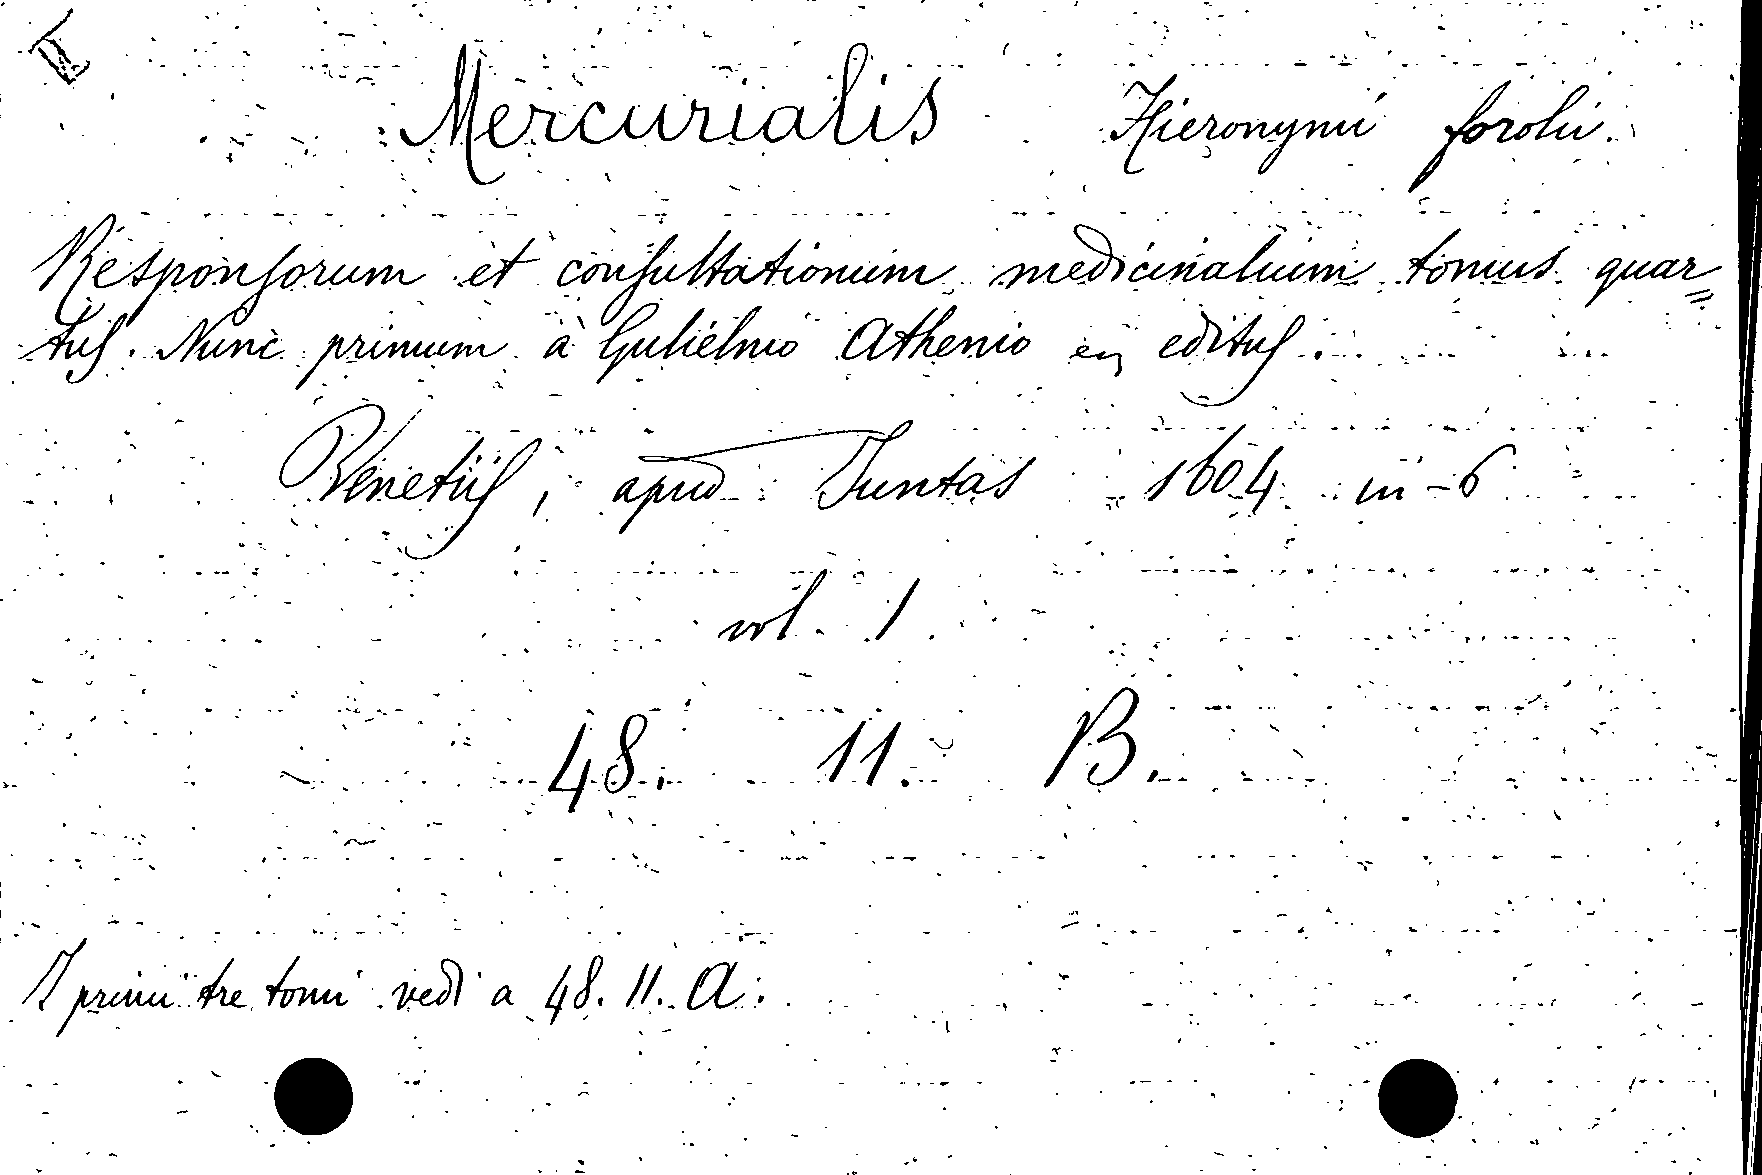 Mercurialis Hieronymi forolii.
Responsorum et consultationum medicinalium tomus quar=
tus. Nunc primum à Gulielmo Athenio editus.
Venetiis, apud Juntas 1604 in-6
vol. 1.
48. 11. B.
I primi tre tomi vedi a 48. 11. A.